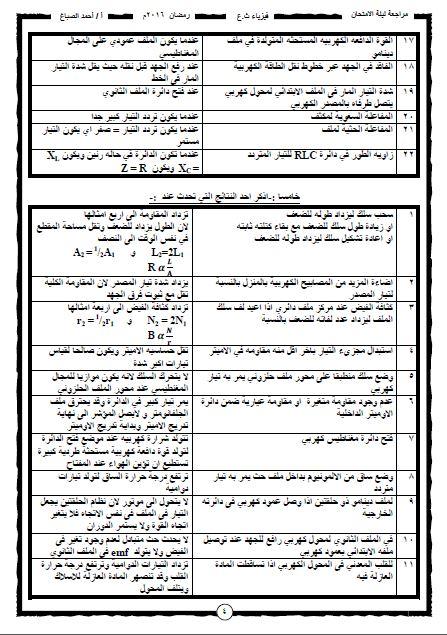 مراجعة ليلة الامتحان
فيزياء ث.ع
رمضان ٢٠١٦م
أ / أحمد الصباغ
١٧ القوة الدافعه الكهربيه المستحثه المتولدة في ملف دينامو
عندما يكون الملف عمودي على المجال المغناطيسي
١٨ الفاقد في الجهد عبر خطوط نقل الطاقة الكهربية
عند رفع الجهد قبل نقله حيث يقل شدة التيار المار في الخط
١٩ شدة التيار المار في الملف الابتدائي لمحول كهربي يتصل طرفاه بالمصدر الكهربي
عند فتح دائرة الملف الثانوي
٢٠ المفاعلة السعوية لمكثف
عندما يكون تردد التيار كبير جدا
٢١ المفاعلة الحثية لملف
عندما يكون تردد التيار = صفر اي يكون التيار مستمر
٢٢ زاويه الطور في دائرة RLC للتيار المتردد
عندما تكون الدائرة في حاله رنين ويكون XL = XC ويكون Z = R
خامسا :- اذكر احد النتائج التي تحدث عند :-
١ سحب سلك ليزداد طوله للضعف
او زيادة طول سلك للضعف مع بقاء كتلته ثابته
او اعادة تشكيل سلك ليزداد طوله للضعف
تزداد المقاومة الى اربع امثالها
لان الطول يزداد للضعف وتقل مساحة المقطع في نفس الوقت الى النصف
L2=2L1 و A2 = 1/2A1
R α L/A
٢ اضاءة المزيد من المصابيح الكهربية بالمنزل بالنسبة لتيار المصدر
يزداد شدة تيار المصدر لان المقاومة الكلية تقل مع ثبوت فرق الجهد
٣ كثافة الفيض عند مركز ملف دائري اذا اعيد لف سلك الملف ليزداد عدد لفاته للضعف بالنسبة
تزداد كثافة الفيض الى اربعة امثالها
N2 = 2N1 و r2 = 1/2r1
B α N/r
٤ استبدال مجزىء التيار باخر اقل منه مقاومه في الاميتر
تقل حساسيه الاميتر ويكون صالحا لقياس تيارات اكبر شدة
٥ وضع سلك منطبقا على محور ملف حلزوني يمر به تيار كهربي
لا يتحرك السلك لانه يكون موازيا للمجال المغنطيسي عند محور الملف الحلزوني
٦ عدم وجود مقاومة متغيرة او مقاومة عيارية ضمن دائرة الاوميتر الداخلية
يمر تيار كبير في الدائرة وقد يحترق ملف الجلفانومتر و لايصل المؤشر الى نهاية تدريج الاميتر وبداية تدريج الاوميتر
٧ فتح دائرة مغناطيس كهربي
تتولد شرارة كهربيه عند موضع فتح الدائرة لتولد قوة دافعه كهربية مستحثة طردية كبيرة تستطيع ان تؤين الهواء عند المفتاح
٨ وضع ساق من الالمونيوم بداخل ملف حث يمر به تيار متردد
ترتفع درجه حرارة الساق لتولد تيارات دواميه
٩ لملف دينامو ذو حلقتين اذا وصل عمود كهربي في دائرته الخارجية
لا يتحول الى موتور لان نظام الحلقتين يجعل التيار في الملف في نفس الاتجاه فلا يتغير اتجاه القوة ولا يستمر الدوران
١٠ في الملف الثانوي لمحول كهربي رافع للجهد عند توصيل ملفه الابتدائي بعمود كهربي
لا يحدث حث متبادل لعدم وجود تغير في الفيض ولا يتولد emf في الملف الثانوي
١١ للقلب المعدني في المحول الكهربي اذا تساقطت المادة العازلة فيه
تزداد التيارات الدوامية وترتفع درجه حرارة القلب وقد تنصهر المادة العازلة للاسلاك ويتلف المحول
٤